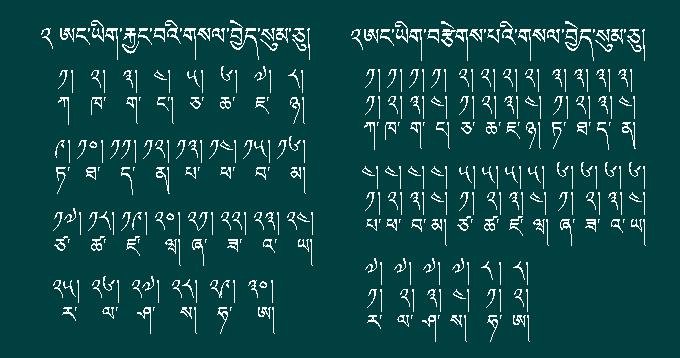 ༢ ཨང་ཡིག་རྐྱང་བའི་གསལ་བྱེད་སུམ་ཅུ།
༡། ༢། ༣། ༤། ༥། ༦། ༧། ༨།
ཀ ཁ་ ག་ ང། ཅ་ ཆ་ ཇ་ ཉ།
༩། ༡༠། ༡༡། ༡༢། ༡༣། ༡༤། ༡༥། ༡༦།
ཏ་ ཐ་ ད་ ན། པ་ ཕ་ བ་ མ།
༡༧། ༡༨། ༡༩། ༢༠། ༢༡། ༢༢། ༢༣། ༢༤།
ཙ་ ཚ་ ཛ་ ཝ། ཞ་ ཟ་ འ་ ཡ།
༢༥། ༢༦། ༢༧། ༢༨། ༢༩། ༣༠།
ར་ ལ་ ཤ་ ས། ཧ་ ཨ།
༢ཨང་ཡིག་བརྩེགས་པའི་གསལ་བྱེད་སུམ་ཅུ།
༡། ༡། ༡། ༡། ༢། ༢། ༢། ༢། ༣། ༣། ༣། ༣།
༡། ༢། ༣། ༤། ༡། ༢། ༣། ༤། ༡། ༢། ༣། ༤།
ཀ་ ཁ་ ག་ ང། ཅ་ ཆ་ ཇ་ ཉ། ཏ་ ཐ་ ད་ ན།
༤། ༤། ༤། ༤། ༥། ༥། ༥། ༥། ༦། ༦། ༦། ༦།
༡། ༢། ༣། ༤། ༡། ༢། ༣། ༤། ༡། ༢། ༣། ༤།
པ་ ཕ་ བ་ མ། ཙ་ ཚ་ ཛ་ ཝ། ཞ་ ཟ་ འ་ ཡ།
༧། ༧། ༧། ༧། ༨། ༨།
༡། ༢། ༣། ༤། ༡། ༢།
ར་ ལ་ ཤ་ ས། ཧ་ ཨ།